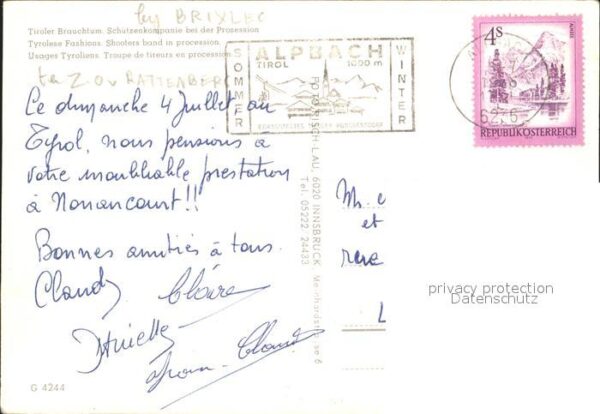 by BRIXLEG
Tiroler Brauchtum. Schützenkompanie bei der Prozession
Tyrolese Fashions. Shooters band in procession.
Usages Tyroliens. Troupe de tireurs en procession
bei Z.O. RATTENBERG
SOMMER
ALPBACH
TIROL 1000 m
WINTER
4S
REPUBLIK ÖSTERREICH
Le dimanche 4 juillet au
Tyrol, nous pensions à
votre inoubliable prestation
à Nonancourt!!
Bonnes amitiés à tous.
Claudy Claire
Jean-Claude
6020 INNSBRUCK Meinhardstrasse 6
Tel. 05222 24433
M. e
et
L
privacy protection
Datenschutz
G 4244